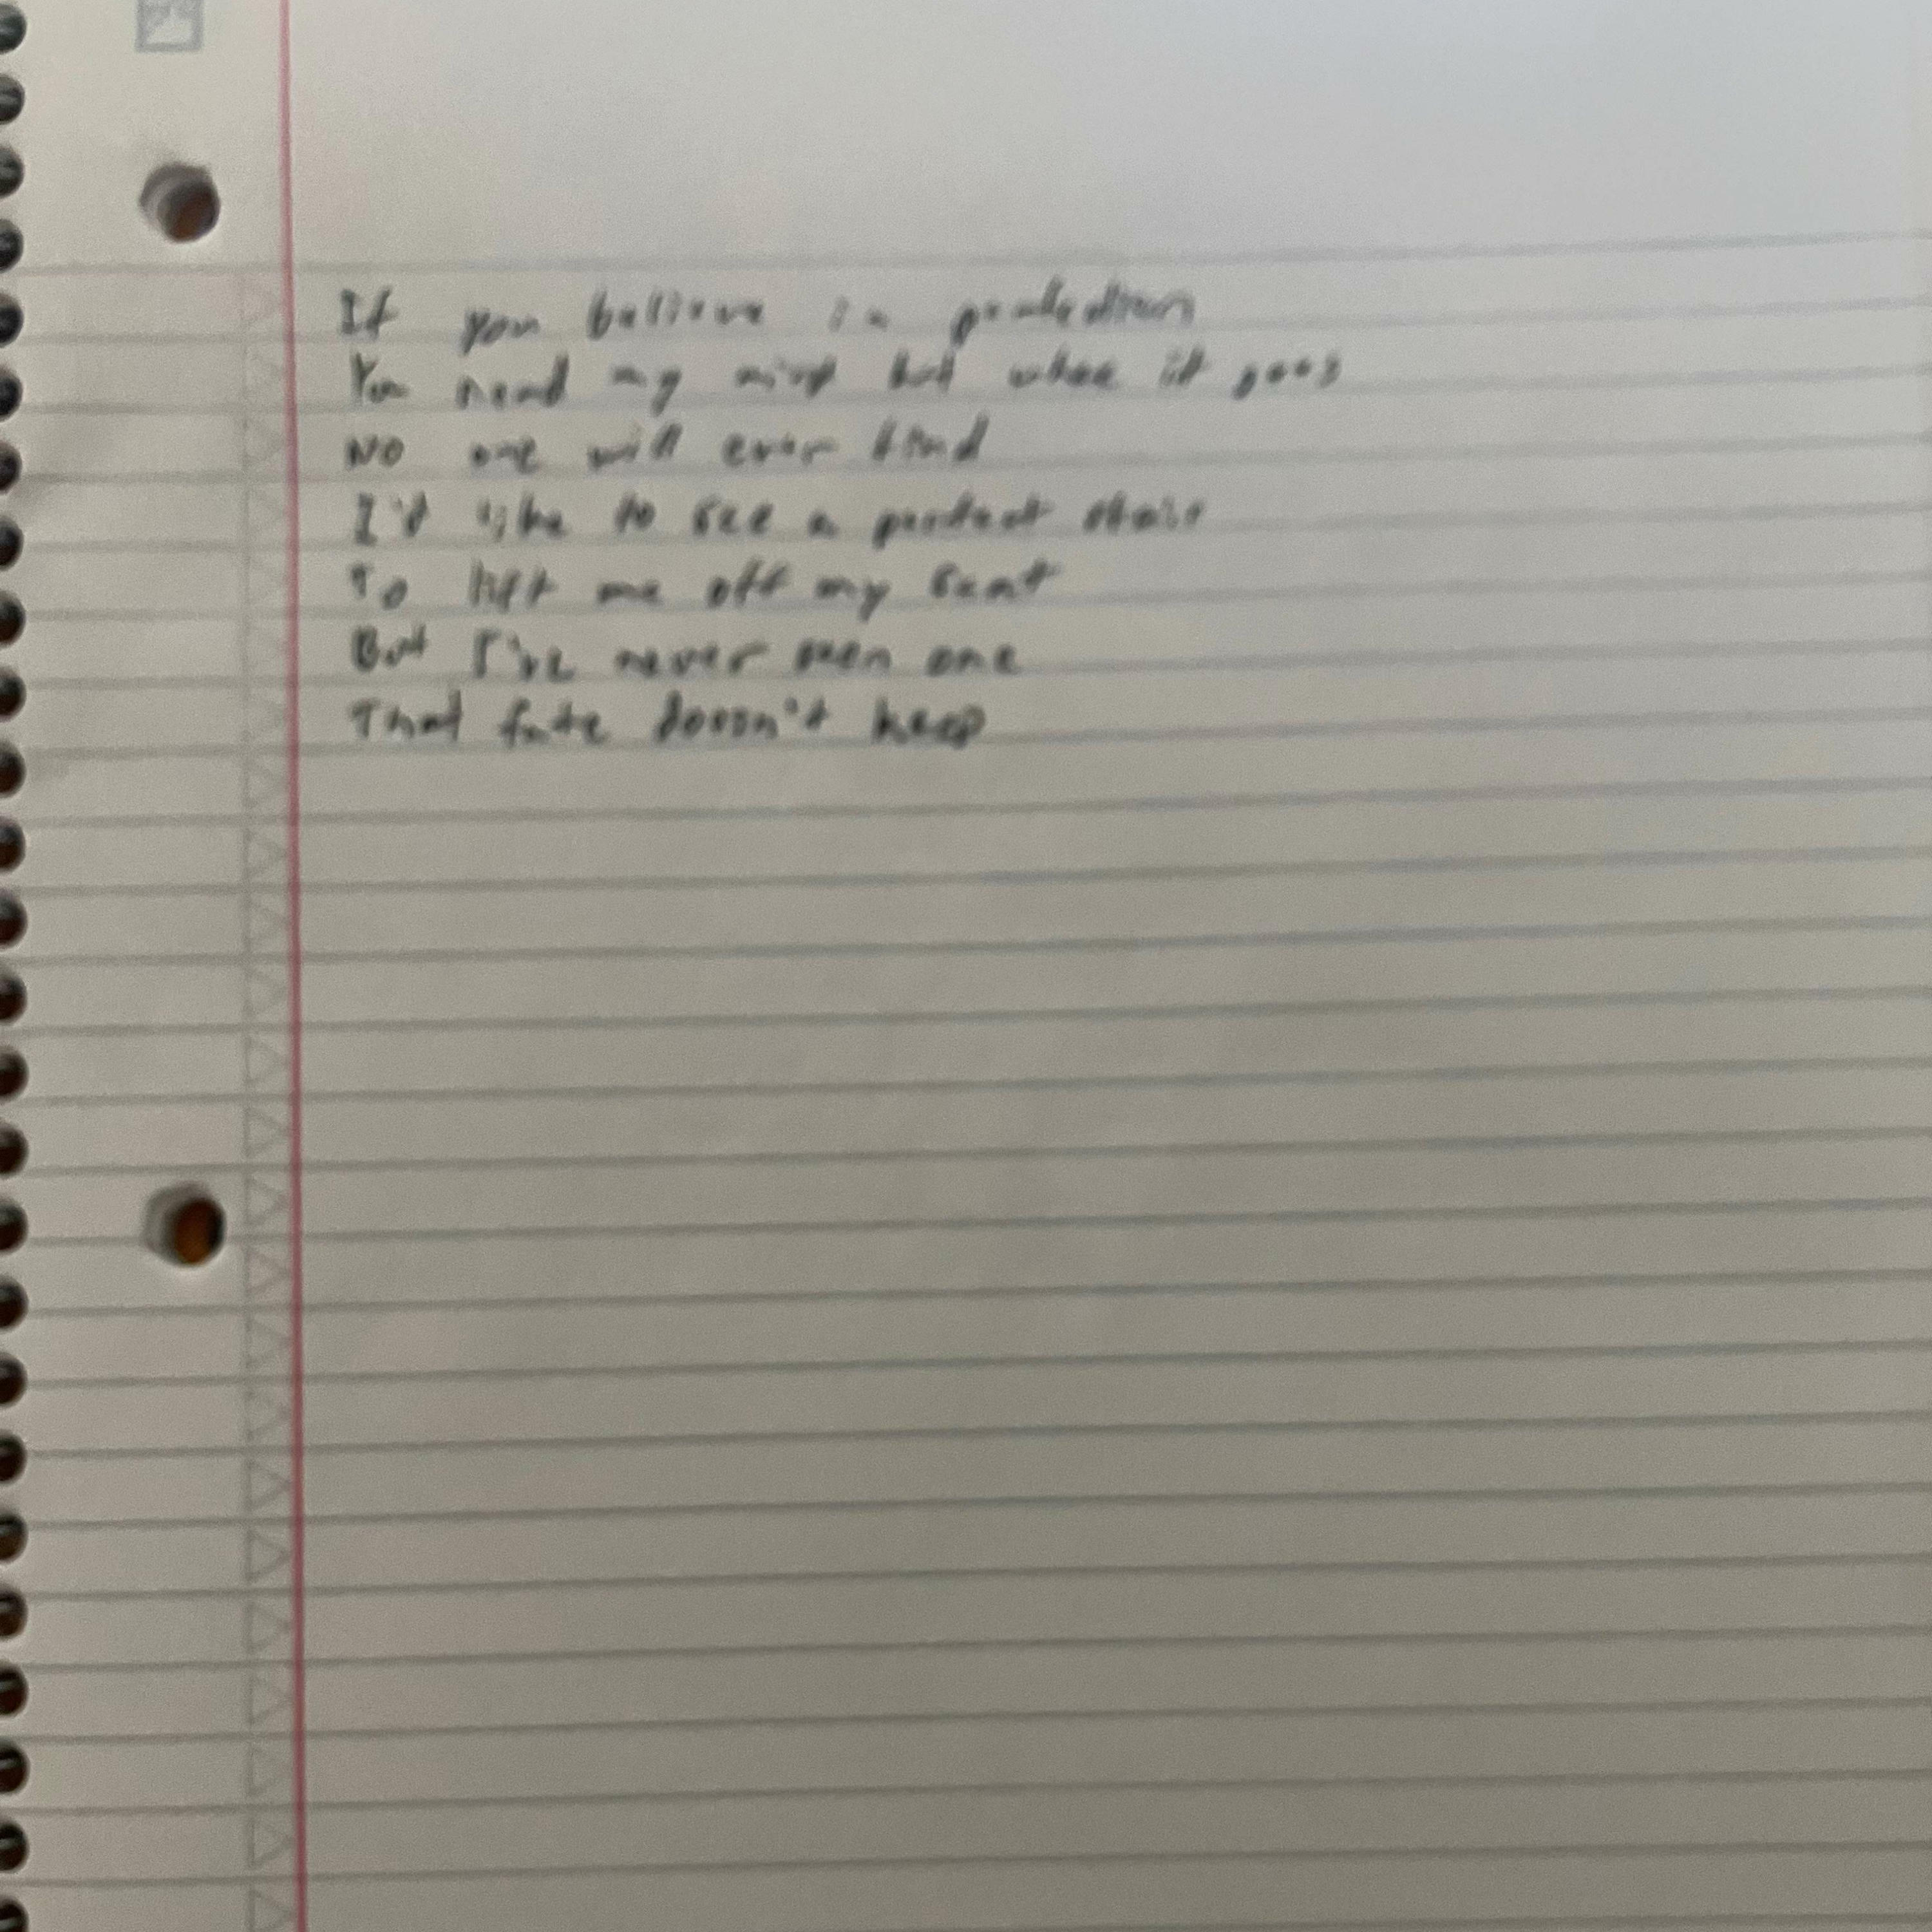 If you believe in
You need my mind but when it goes
No one will ever find
I'd like to see a perfect
To lift me off my seat
But I've never seen one
That fate doesn't keep